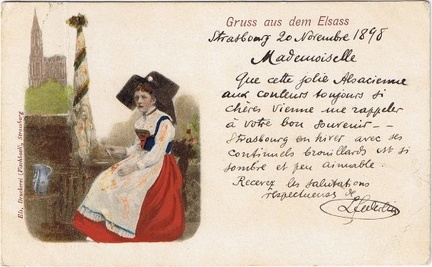 Gruss aus dem Elsass
Strasbourg 20 Novembre 1898
Mademoiselle
Que cette jolie Alsacienne
aux couleurs toujours si
chères vienne me rappeler
à votre bon souvenir --
Strasbourg en hiver avec ses
continuels brouillards est si
sombre et peu aimable.
Recevez les salutations
respectueuses de
Els. Druckerei (Fischbach), Strassburg